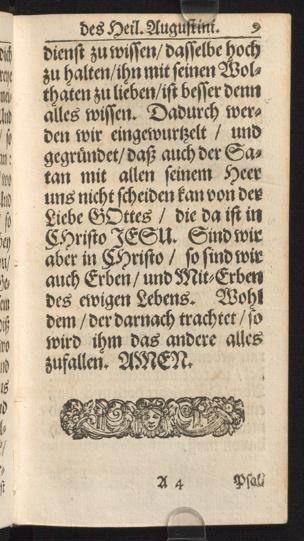 des Heil. Augustini. 9
dienst zu wissen/ dasselbe hoch
zu halten/ ihn mit seinen Wol-
thaten zu lieben/ ist besser denn
alles wissen. Dadurch wer-
den wir eingewurtzelt / und
gegründet/ daß auch der Sa-
tan mit allen seinem Heer
uns nicht scheiden kan von der
Liebe GOttes / die da ist in
CHristo JESU. Sind wir
aber in CHristo / so sind wir
auch Erben/ und Mit-Erben
des ewigen Lebens. Wohl
dem/ der darnach trachtet/ so
wird ihm das andere alles
zufallen. AMEN.
A 4 Psal